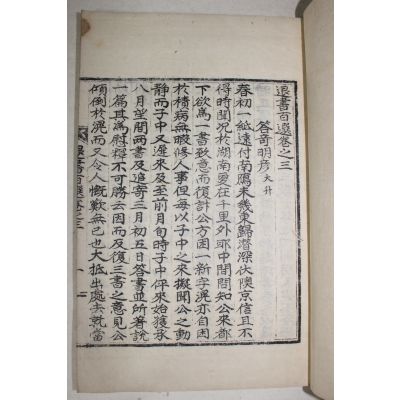 退書百選卷之三
答奇明彦 大升
春初一紙遠付南鴈未幾東歸潛深伏隩京信且不
得時聞況於湖南憂在千里外耶中間聞知公來都
下欲爲一書致意而復計公方困一新字滉亦自困
於積病無暇修人事但每以子中之來擬聞公之動
靜而子中又遲來及至前月旬時子中伻來始獲承
八月望間兩書及追寄三月初五日答書並所著說
一篇其爲慰釋不可勝云因而反復三書之意見公
傾倒於滉而又令人慨歎無已也大抵出處去就當
退書百選卷之三
一